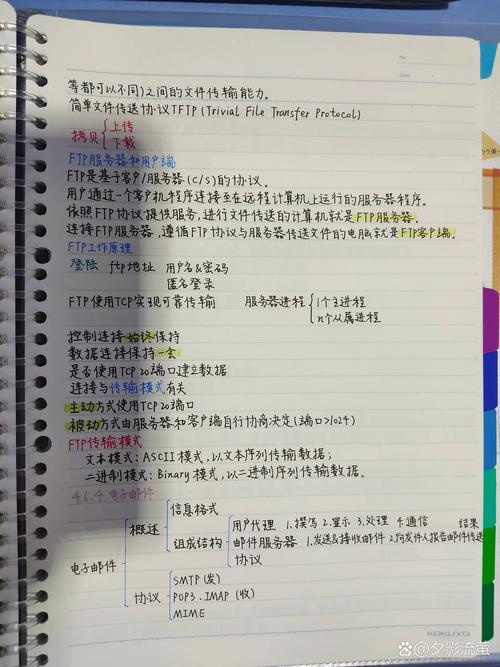 No.
Date
等都可以不同)之间的文件传输能力。
简单文件传送协议TFTP(Trivial File Transfer Protocol)
拷贝{上传
下载
FTP服务器和用户端
FTP是基于客户/服务器(C/S)的协议。
用户通过一个客户机程序连接至在远程计算机上运行的服务器程序。
依照FTP协议提供服务,进行文件传送的计算机就是FTP服务器。
连接FTP服务器,遵循FTP协议与服务器传送文件的电脑就是FTP客户端。
FTP工作原理
登陆 ftp地址 用户名&密码
匿名登录
FTP使用TCP实现可靠传输 服务器进程{1个主进程
n个从属进程
控制连接始终保持
数据连接保持一会
是否使用TCP 20端口建立数据
连接与传输模式有关
主动方式使用TCP 20端口
被动方式由服务器和客户端自行协商决定(端口>1024)
FTP传输模式
文本模式:ASCII模式,以文本序列传输数据;
二进制模式:Binary模式,以二进制序列传输数据。
4.6.4 电子邮件
信息格式
概述
用户代理 1.撰写 2.显示 3.处理 4.通信 结果
组成结构 邮件服务器 1.发送&接收邮件 2.向发件人报告邮件传送
协议
电子邮件
SMTP(发)
协议 POP3、IMAP(收)
MIME
KOKUYO
@夕影流萤